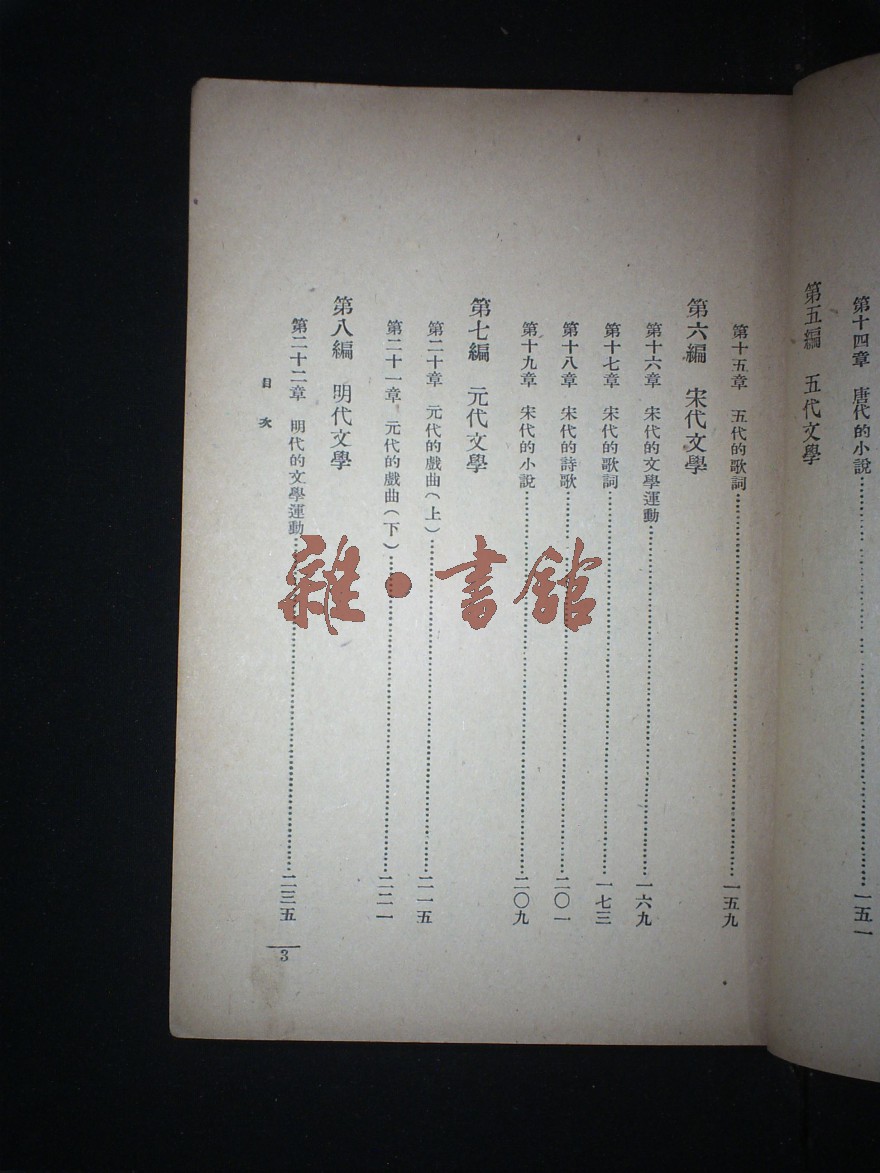 第十四章　唐代的小說……一五一
第五編　五代文學
第十五章　五代的歌詞……一五九
第六編　宋代文學
第十六章　宋代的文學運動……一六九
第十七章　宋代的歌詞……一七三
第十八章　宋代的詩歌……二〇一
第十九章　宋代的小說……二〇九
第七編　元代文學
第二十章　元代的戲曲(上)……二一五
第二十一章　元代的戲曲(下)……二二一
第八編　明代文學
第二十二章　明代的文學運動……二三五
目次
3
雜·書館